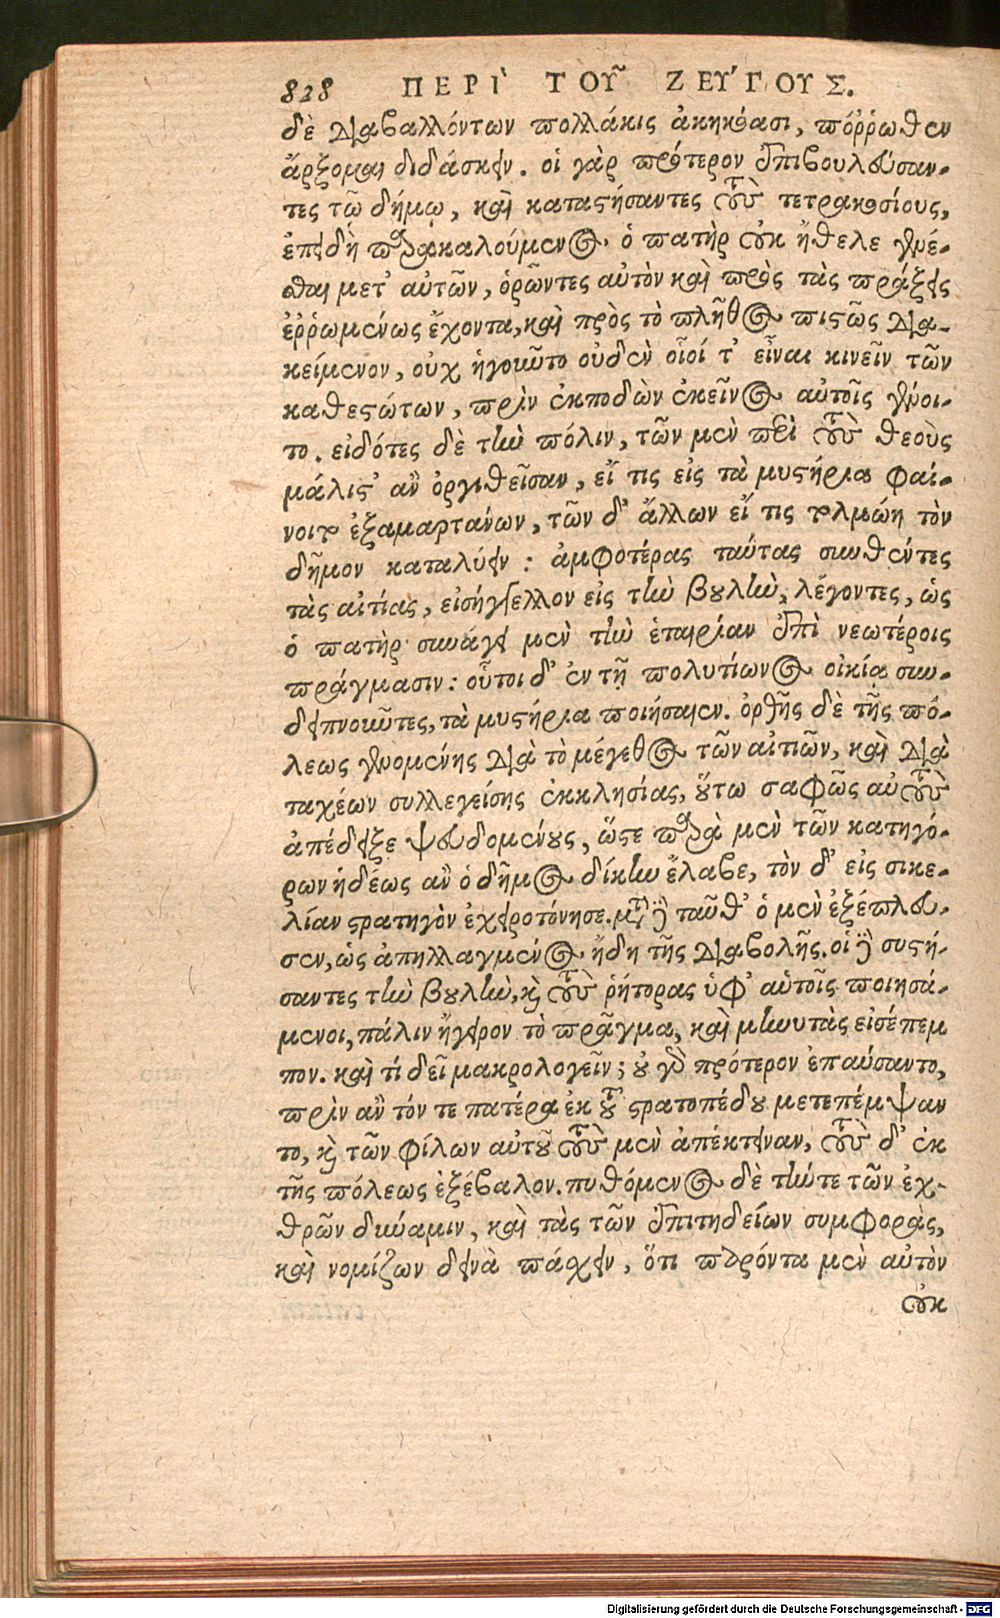 828 ΠΕΡῚ ΤΟΥ͂ ΖΕΎΓΟΥΣ.
δὲ διαβαλλόντων πολλάκις ἀκηκόασι, πόῤῥωθεν
ἄρξομαι διδάσκειν. οἱ γὰρ πρότερον ἐπιβουλεύσαν-
τες τῷ δήμῳ, καὶ καταστήσαντες τοὺς τετρακοσίους,
ἐπειδὴ παρακαλούμενος ὁ πατὴρ οὐκ ἤθελε γενέ-
σθαι μετ' αὐτῶν, ὁρῶντες αὐτὸν καὶ πρὸς τὰς πράξεις
ἐῤῥωμένως ἔχοντα, καὶ πρὸς τὸ πλῆθος πιστῶς δια-
κείμενον, οὐχ ἡγοῦντο οὐδὲν οἷοί τ' εἶναι κινεῖν τῶν
καθεστώτων, πρὶν ἐκποδὼν ἐκεῖνος αὐτοῖς γένοι-
το. εἰδότες δὲ τὴν πόλιν, τῶν μὲν περὶ τοὺς θεοὺς
μάλιστ' ἂν ὀργισθεῖσαν, εἴ τις εἰς τὰ μυστήρια φαί-
νοιτο ἐξαμαρτάνων, τῶν δ' ἄλλων εἴ τις τολμώη τὸν
δῆμον καταλύειν : ἀμφοτέρας ταύτας συνθέντες
τὰς αἰτίας, εἰσήγγελλον εἰς τὴν βουλὴν, λέγοντες, ὡς
ὁ πατὴρ συνάγει μὲν τὴν ἑταιρίαν ἐπὶ νεωτέροις
πράγμασιν : οὗτοι δ' ἐν τῇ πολυτίωνος οἰκίᾳ συν-
δειπνοῦντες, τὰ μυστήρια ποιήσαιεν. ὀρθῆς δὲ τῆς πό-
λεως γενομένης διὰ τὸ μέγεθος τῶν αἰτιῶν, καὶ διὰ
ταχέων συλλεγείσης ἐκκλησίας, οὕτω σαφῶς αὐτοὺς
ἀπέδειξε ψευδομένους, ὥστε παρὰ μὲν τῶν κατηγό-
ρων ἡδέως ἂν ὁ δῆμος δίκην ἔλαβε, τὸν δ' εἰς σικε-
λίαν στρατηγὸν ἐχειροτόνησε. μετὰ δὲ ταῦθ' ὁ μὲν ἐξέπλευ-
σεν, ὡς ἀπηλλαγμένος ἤδη τῆς διαβολῆς. οἱ δὲ συστή-
σαντες τὴν βουλὴν, καὶ τοὺς ῥήτορας ὑφ' αὑτοῖς ποιησά-
μενοι, πάλιν ἤγειρον τὸ πρᾶγμα, καὶ μηνυτὰς εἰσέπεμ
πον. καὶ τί δεῖ μακρολογεῖν; οὐ γὰρ πρότερον ἐπαύσαντο,
πρὶν ἂν τόν τε πατέρα ἐκ τοῦ στρατοπέδου μετεπέμψαν
το, καὶ τῶν φίλων αὐτοῦ τοὺς μὲν ἀπέκτειναν, τοὺς δ' ἐκ
τῆς πόλεως ἐξέβαλον. πυθόμενος δὲ τήν τε τῶν ἐχ-
θρῶν δύναμιν, καὶ τὰς τῶν ἐπιτηδείων συμφορὰς,
καὶ νομίζων δεινὰ πάσχειν, ὅτι παρόντα μὲν αὐτὸν
οὐκ
Digitalisierung gefördert durch die Deutsche Forschungsgemeinschaft - DFG